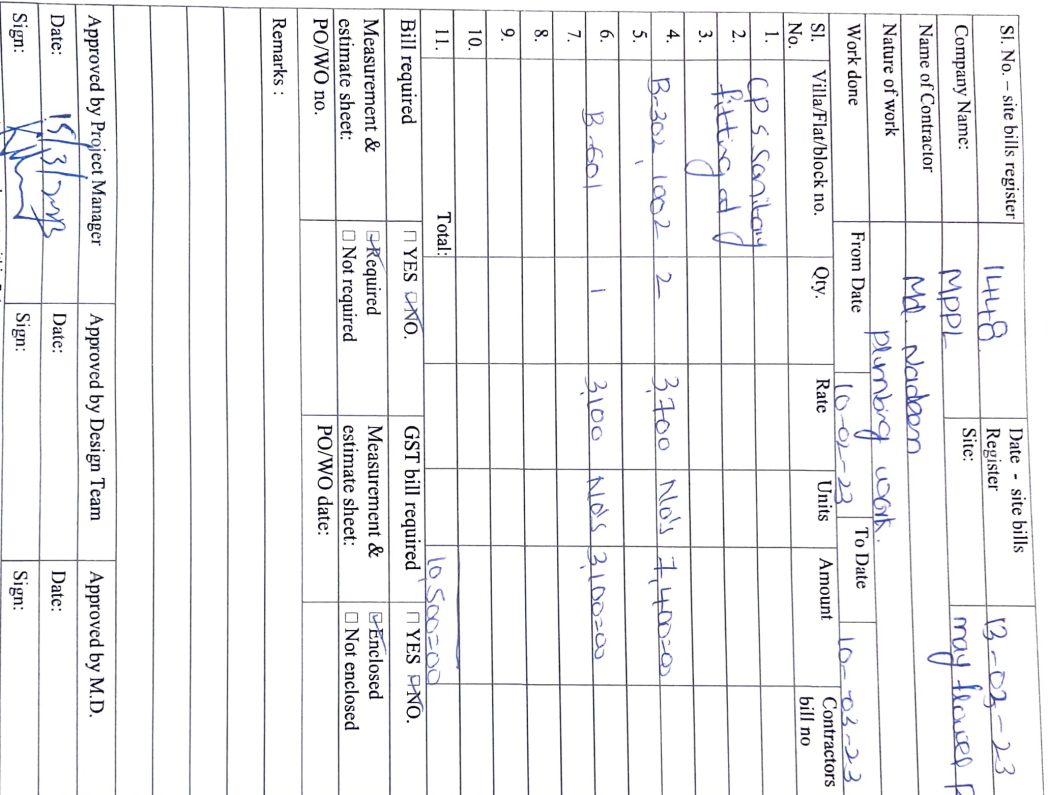 Sl. No. – site bills register 1448. Date - site bills Register 13-03-23
Company Name: MPPL Site: may flower
Name of Contractor Md. Nadeem
Nature of work plumbing work.
Work done From Date 10-02-23 To Date 10-03-23
Sl. No. Villa/Flat/block no. Qty. Rate Units Amount Contractors bill no
1. CP S Sanitary
2. fitting at
3.
4. B-302, 1002 2 3,700 No's 7,400=00
5.
6. B-601 1 3,100 No's 3,100=00
7.
8.
9.
10.
11. Total: 10,500=00
Bill required □ YES □ NO. GST bill required □ YES □ NO.
Measurement & estimate sheet: □ Required □ Not required Measurement & estimate sheet: □ Enclosed □ Not enclosed
PO/WO no. PO/WO date:
Remarks :
Approved by Project Manager Approved by Design Team Approved by M.D.
Date: 15/3/2023 Date: Date:
Sign: Sign: Sign: